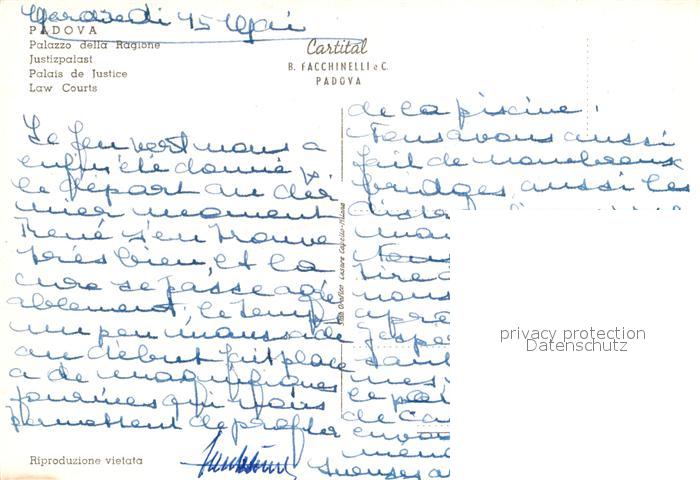 Mercredi 15 Mai
PADOVA
Palazzo della Ragione
Justizpalast
Palais de Justice
Law Courts
Cartital
B. FACCHINELLI e C.
PADOVA
Le feu vert nous a
enfin été donné
le départ au der
nier moment
René s'en trouve
très bien, et la
cure se passe agré
ablement, le temps
un peu maussade
au début fait place
à de magnifiques
journées qui nous
permettent de profiter
de la piscine.
Nous avons aussi
fait de nombreux
bridges, aussi les
dista
Nous
tire
nous
après
J'espè
sant
le
de
Stab. Grafico Cesare Capello - Milano
Riproduzione vietata
privacy protection
Datenschutz